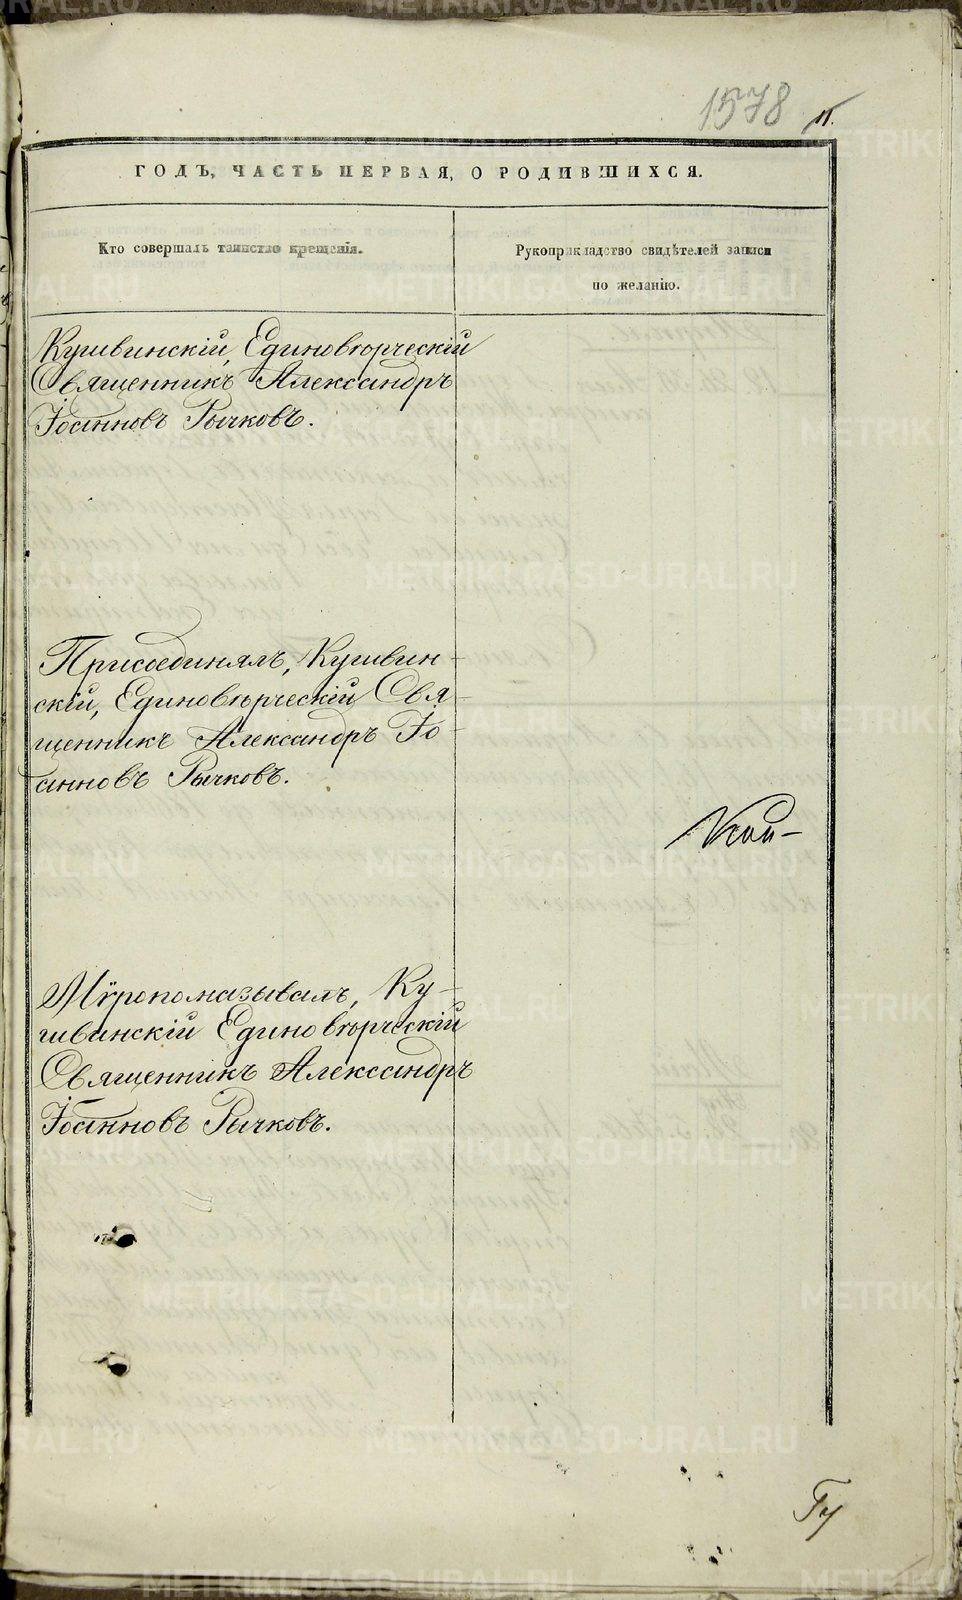 1578 11.
ГОДЪ, ЧАСТЬ ПЕРВАЯ, О РОДИВШИХСЯ.
Кто совершалъ таинство крещенія.
Рукоприкладство свидѣтелей записи
по желанію.
Кушвинскій, Единовѣрческій
Священникъ Александръ
Іоанновъ Рычковъ.
Присоединялъ, Кушвин-
скій, Единовѣрческій Свя-
щенникъ Александръ Іо-
анновъ Рычковъ.
Мѵропомазывалъ, Ку-
швинскій Единовѣрческій
Священникъ Александръ
Іоанновъ Рычковъ.
METRIKI.GASO-URAL.RU